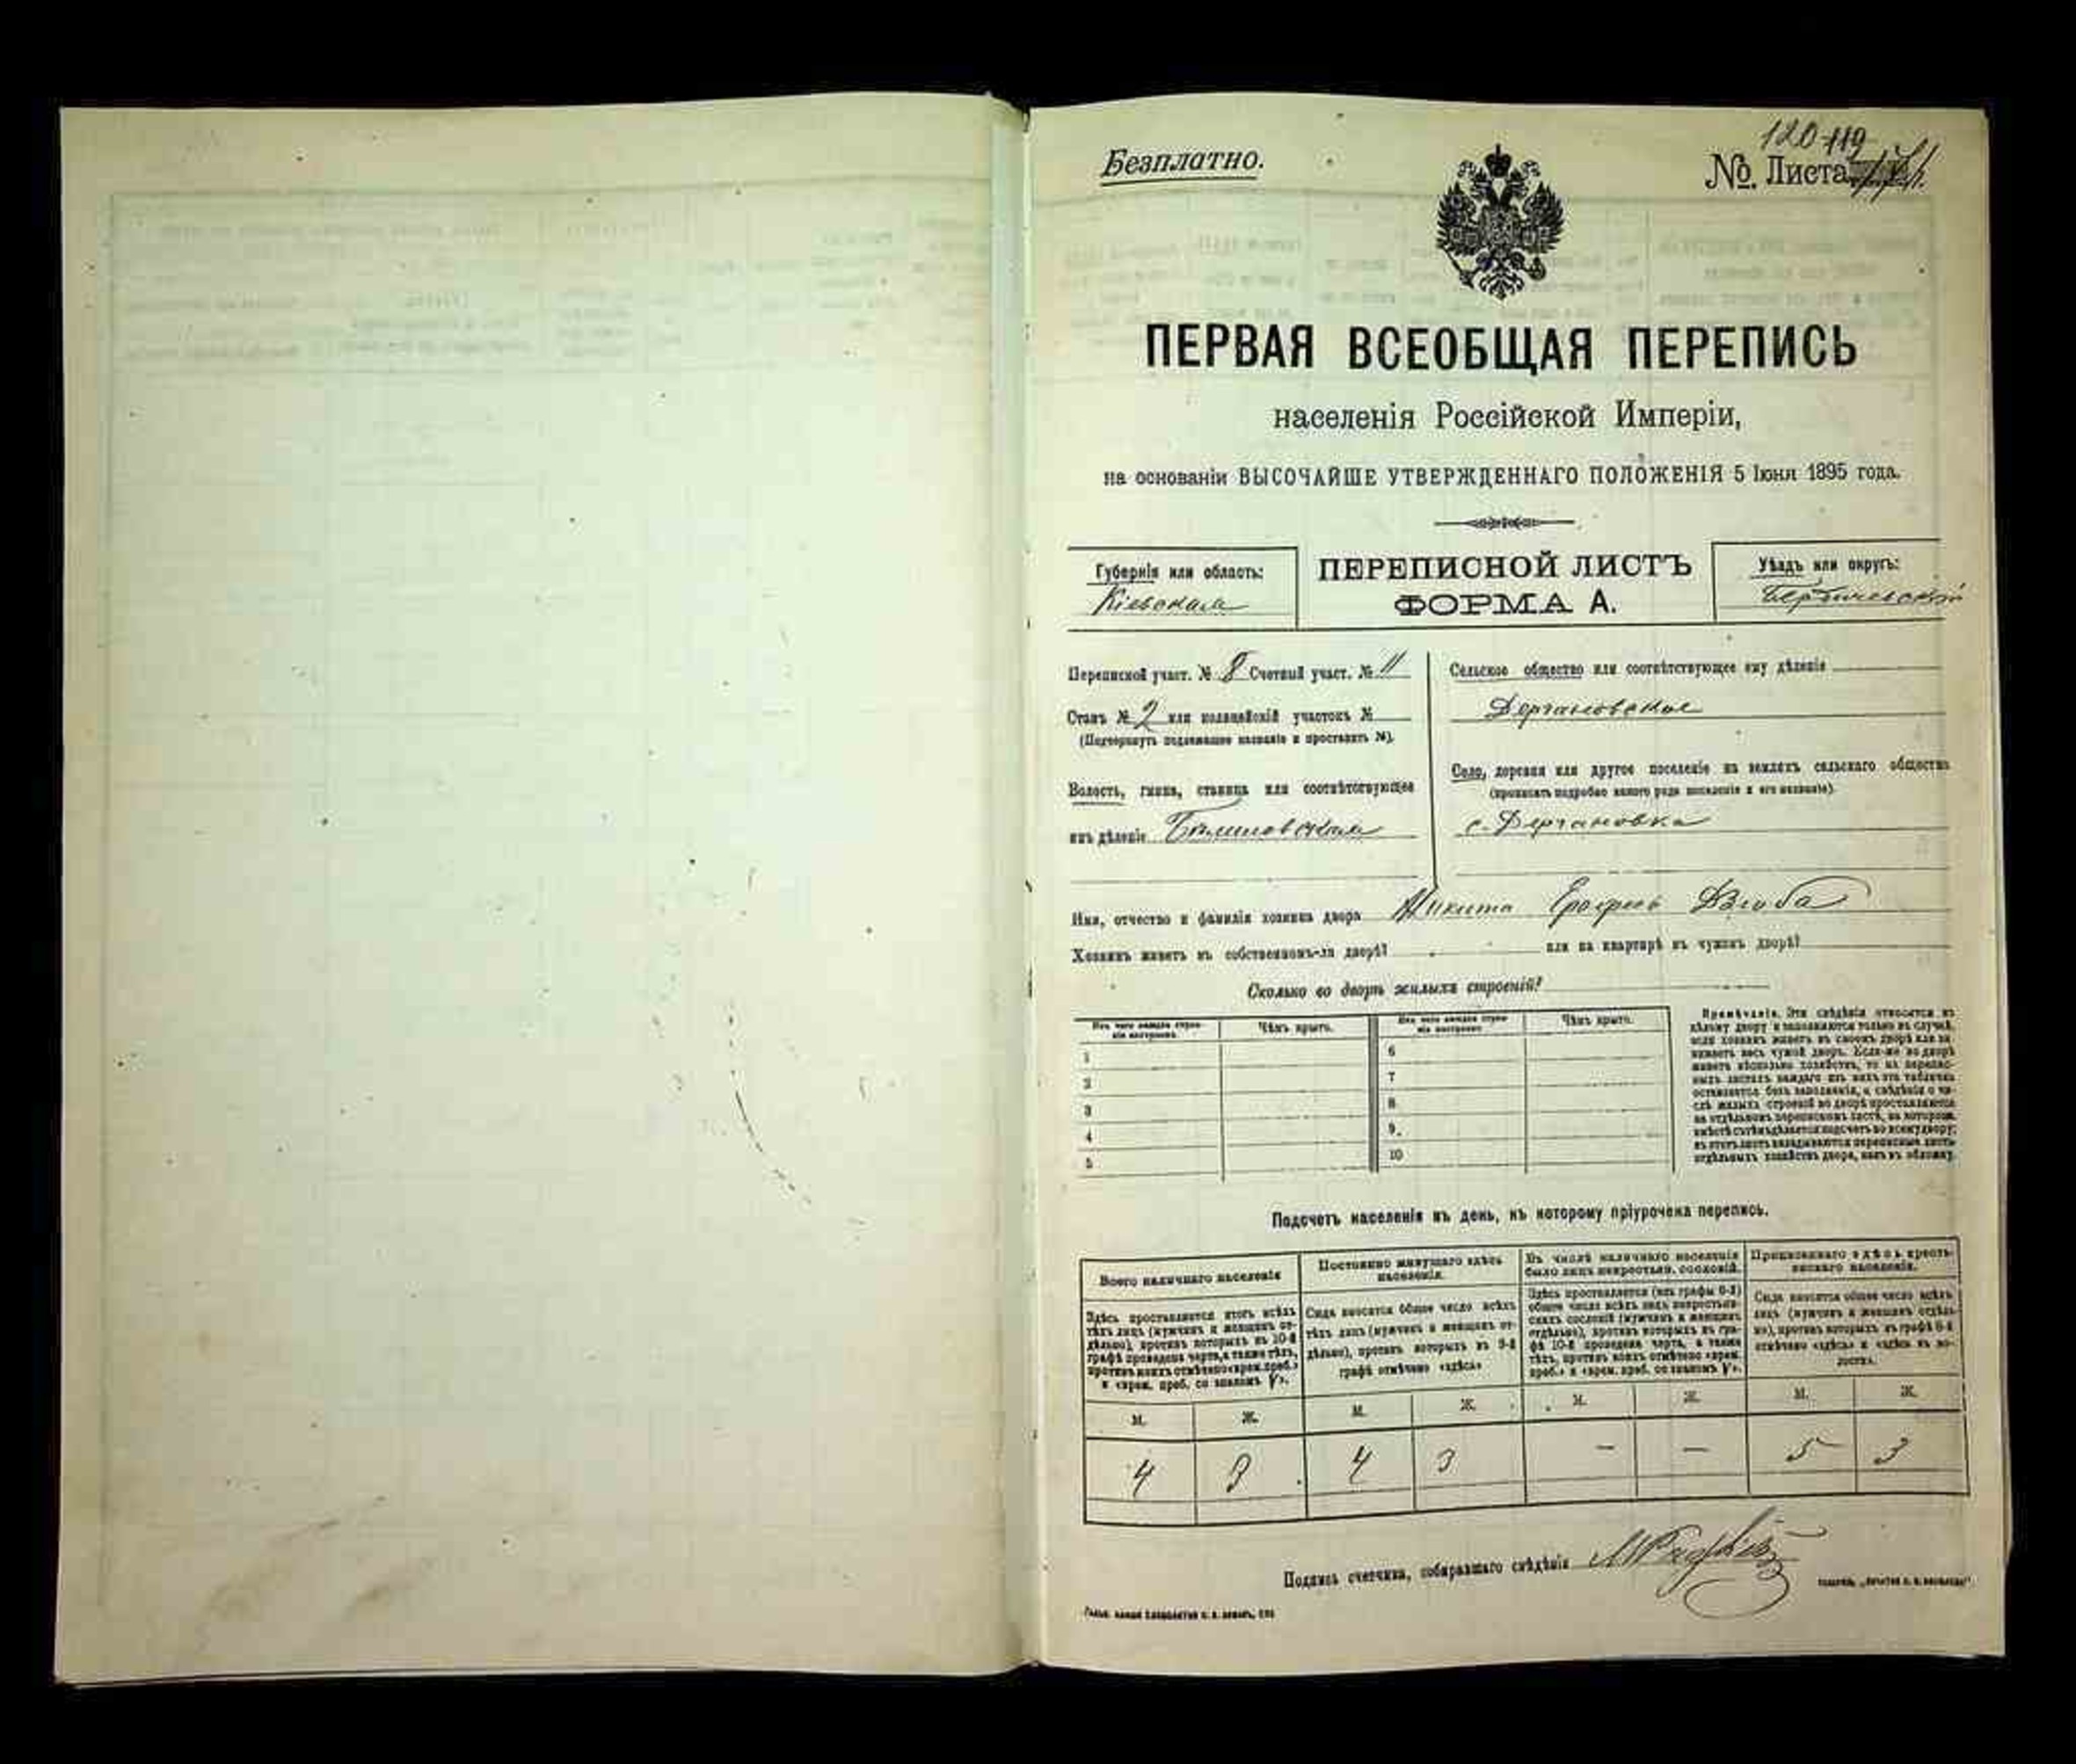 Безплатно.
120 119
№. Листа
ПЕРВАЯ ВСЕОБЩАЯ ПЕРЕПИСЬ
населенія Россійской Имперіи,
на основаніи ВЫСОЧАЙШЕ УТВЕРЖДЕННАГО ПОЛОЖЕНІЯ 5 Іюня 1895 года.
Губернія или область:
Кіевская
ПЕРЕПИСНОЙ ЛИСТЪ
ФОРМА А.
Уѣздъ или округъ:
Бердичевскій
Переписной участ. № 8 Счетный участ. № 11
Станъ № 2 или полицейскій участокъ №
(Подчеркнуть подлежащее названіе и проставить №).
Волость, гмина, станица или соотвѣтствующее
имъ дѣленіе
Сельское общество или соотвѣтствующее ему дѣленіе
Дергановское
Село, деревня или другое поселеніе на земляхъ сельскаго общества
(прописать подробно какого рода поселеніе и его названіе).
с. Дергановка
Имя, отчество и фамилія хозяина двора Никита Ерофеевъ Дзюба
Хозяинъ живетъ въ собственномъ-ли дворѣ? или на квартирѣ въ чужомъ дворѣ?
Сколько во дворѣ жилыхъ строеній?
Изъ чего каждое строе-
ніе построено.
Чѣмъ крыто.
Изъ чего каждое строе-
ніе построено.
Чѣмъ крыто.
1
2
3
4
5
6
7
8
9.
10
Примѣчаніе. Эти свѣдѣнія относятся къ
цѣлому двору и заполняются только въ случаѣ,
если хозяинъ живетъ въ своемъ дворѣ или за-
нимаетъ весь чужой дворъ. Если-же во дворѣ
живетъ нѣсколько хозяйствъ, то на перепис-
ныхъ листахъ каждаго изъ нихъ эта табличка
оставляется безъ заполненія, а свѣдѣнія о чи-
слѣ жилыхъ строеній во дворѣ проставляются
на отдѣльномъ переписномъ листѣ, на которомъ
вмѣстѣ съ тѣмъ дѣлается подсчетъ по всему двору;
въ этотъ листъ вкладываются переписные листы
отдѣльныхъ хозяйствъ двора, какъ въ обложку.
Подсчетъ населенія въ день, къ которому пріурочена перепись.
Всего наличнаго населенія
Здѣсь проставляется итогъ всѣхъ
тѣхъ лицъ (мужчинъ и женщинъ от-
дѣльно), противъ которыхъ въ 10-й
графѣ проведена черта, а также тѣхъ,
противъ коихъ отмѣчено «врем. преб.»
и «врем. преб. со знакомъ V».
Постоянно живущаго здѣсь
населенія.
Сюда вносится общее число всѣхъ
тѣхъ лицъ (мужчинъ и женщинъ от-
дѣльно), противъ которыхъ въ 9-й
графѣ отмѣчено «здѣсь»
Въ числѣ наличнаго населенія
было лицъ некрестьян. сословій.
Здѣсь проставляется (изъ графы 6-й)
общее число всѣхъ лицъ некрестьян-
скихъ сословій (мужчинъ и женщинъ
отдѣльно), противъ которыхъ въ гра-
фѣ 10-й проведена черта, а также
тѣхъ, противъ коихъ отмѣчено «врем.
преб.» и «врем. преб. со знакомъ V».
Приписаннаго здѣсь кресть-
янскаго населенія.
Сюда вносится общее число всѣхъ
лицъ (мужчинъ и женщинъ отдѣль-
но), противъ которыхъ въ графѣ 8-й
отмѣчено «здѣсь» и «здѣсь въ во-
лости».
М. Ж. М. Ж. М. Ж. М. Ж.
4 3 4 3 — — 5 3
Подпись счетчика, собиравшаго свѣдѣнія